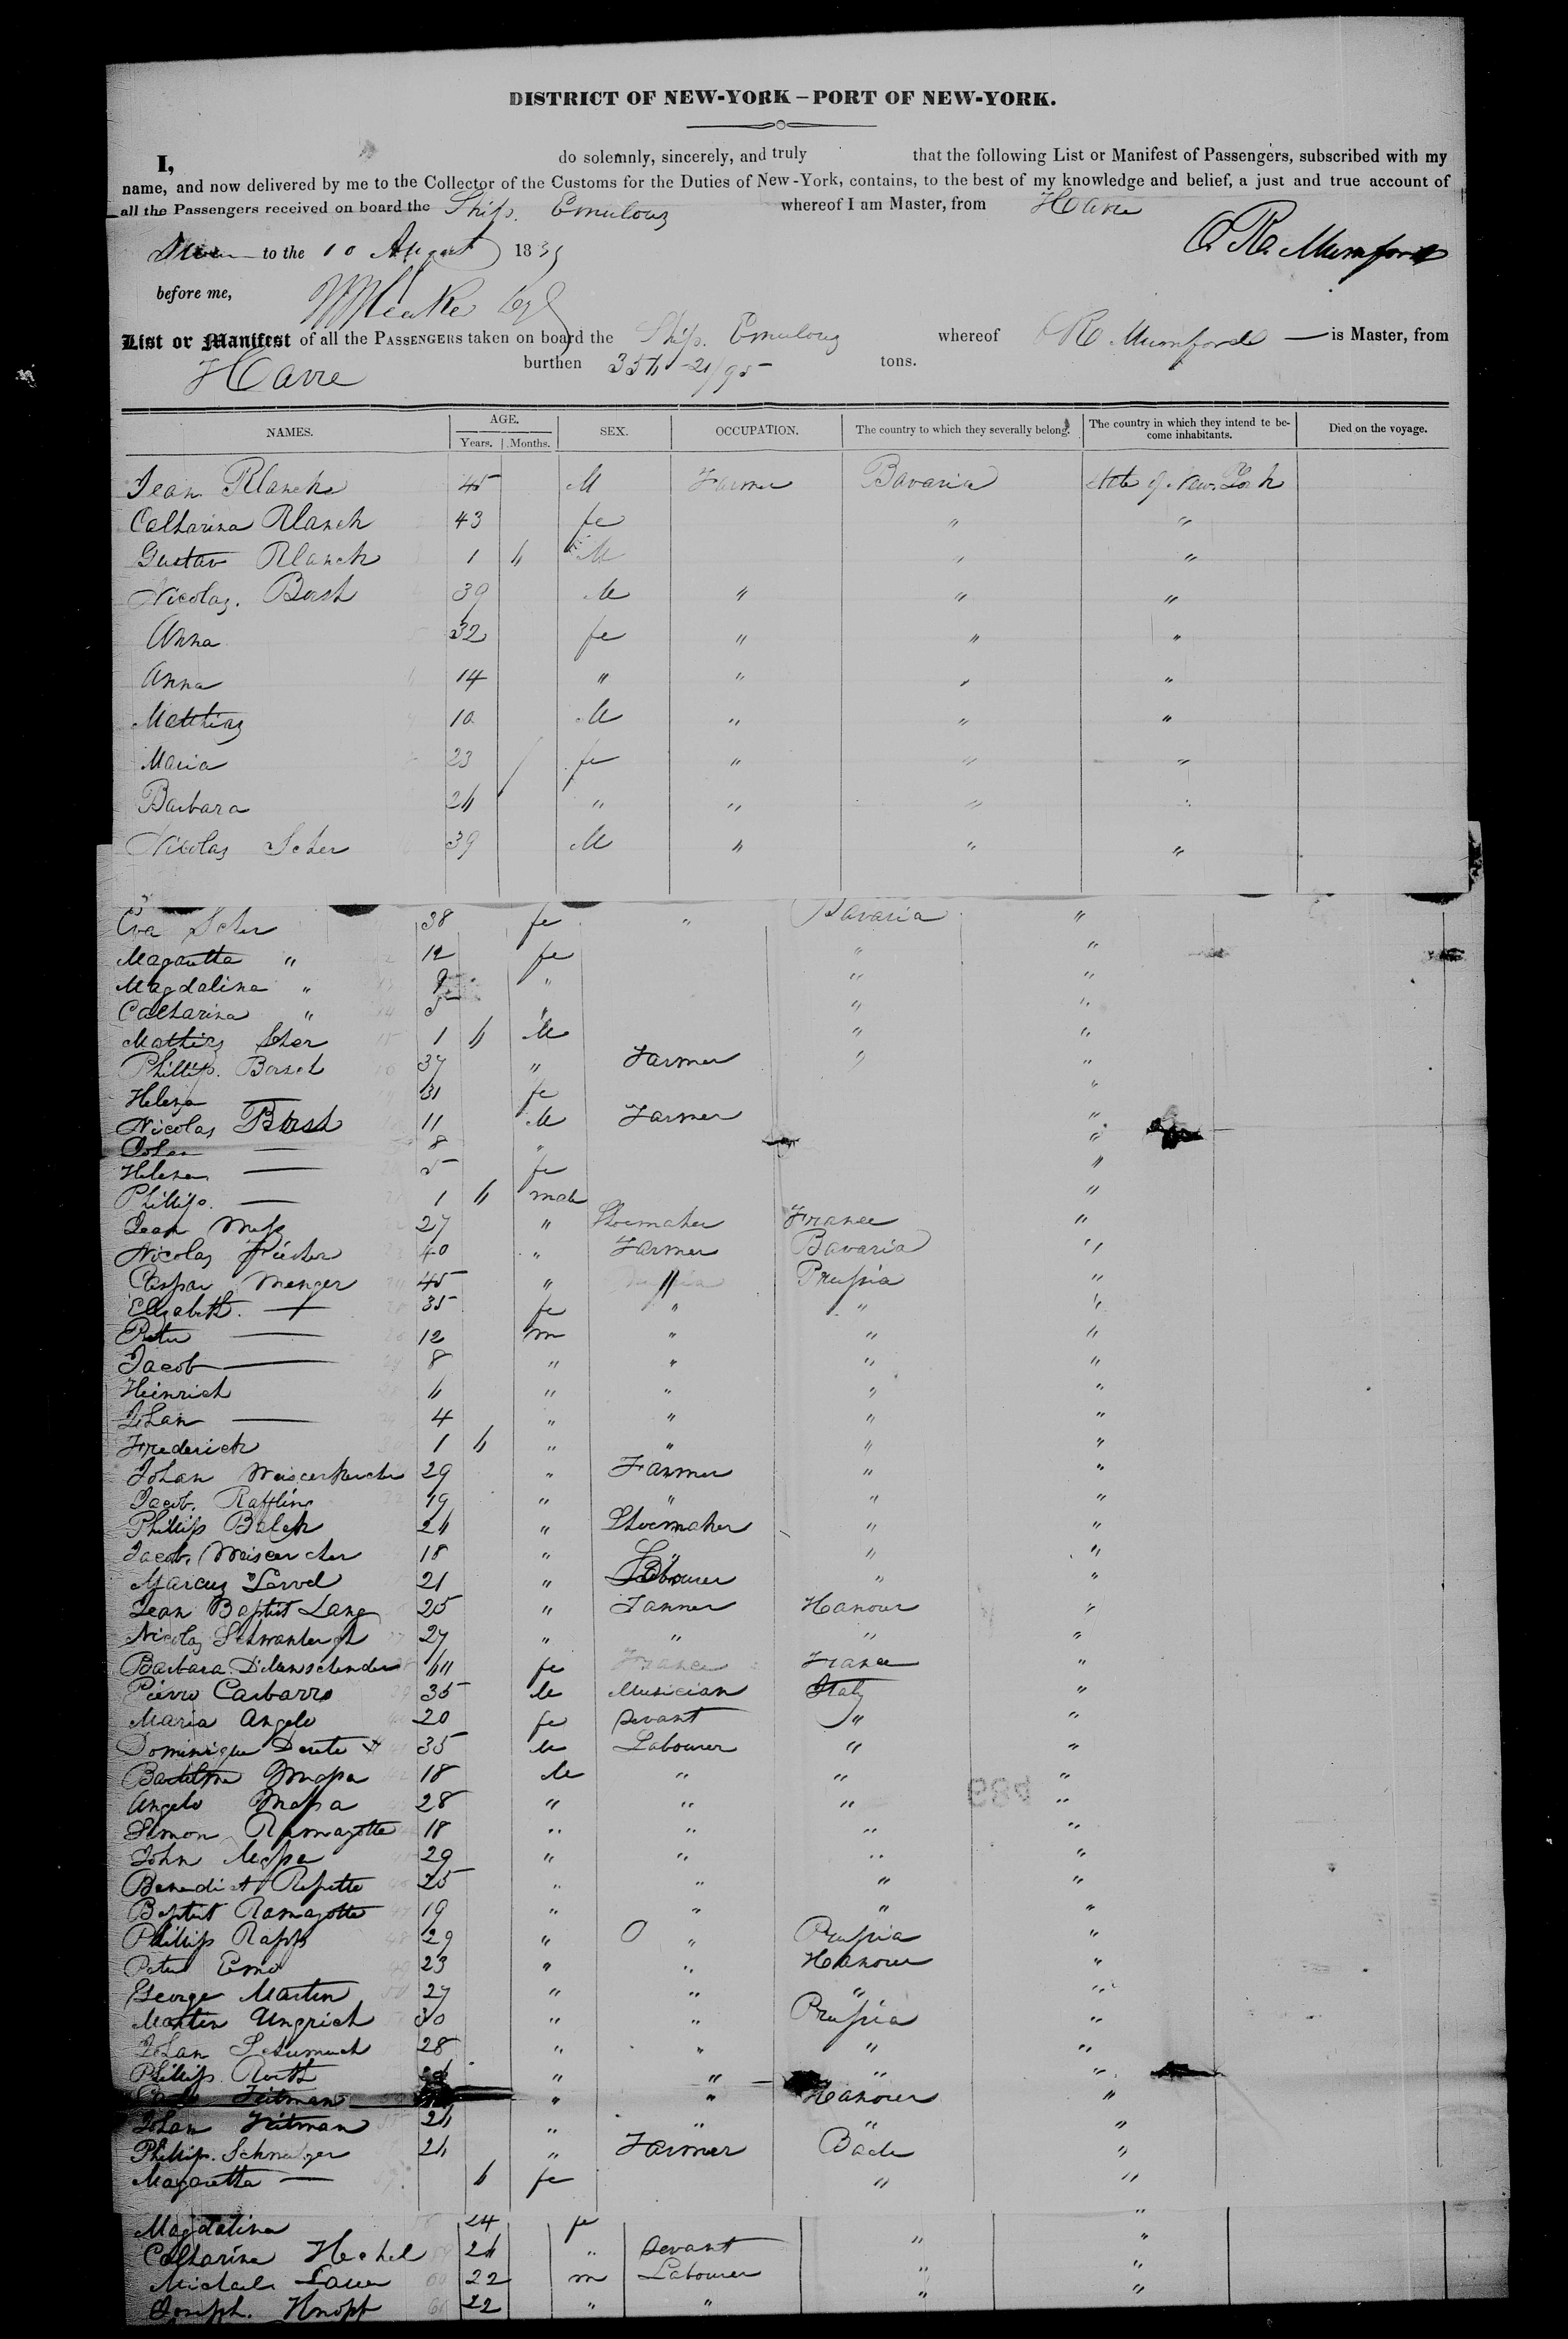 DISTRICT OF NEW-YORK – PORT OF NEW-YORK.
I, do solemnly, sincerely, and truly that the following List or Manifest of Passengers, subscribed with my
name, and now delivered by me to the Collector of the Customs for the Duties of New-York, contains, to the best of my knowledge and belief, a just and true account of
all the Passengers received on board the Ship. Emulous whereof I am Master, from Havre
to the 10 August 1839 O. R. Mumford
before me,
List or Manifest of all the PASSENGERS taken on board the Ship. Emulous whereof O R. Mumford — is Master, from
Havre burthen tons.
NAMES. AGE. Years. Months. SEX. OCCUPATION. The country to which they severally belong. The country in which they intend to become inhabitants. Died on the voyage.
Jean Blanch 45 M Farmer Bavaria State of New-York
Catharina Blanch 43 fe " "
Gustav Blanch 1 6 M " "
Nicolas. Bosh 39 M " " "
Anna 32 fe " " "
Anna 14 " " " "
Matthias 10 M " " "
Maria 23 fe " " "
Barbara 26 " " " "
Nicolas Scher 39 M " " "
Eva Scher 38 fe " Bavaria "
Magaretta " 12 fe " "
Magdalina " 9 " " "
Catharina " 5 " " "
Mathias Scher 1 6 M " "
Phillip. Borsch 37 " Farmer " "
Helena — 31 fe "
Nicolas Borsh 11 M Farmer "
Johan — 8 " "
Helena — 5 fe "
Phillip. — 1 6 male "
Jean 27 " Shoemaker France "
Nicolas 40 " Farmer Bavaria "
Caspar Menger 45 " " Prussia "
Elizabeth. — 35 fe " " "
Peter — 12 m " " "
Jacob — 8 " " " "
Heinrich 6 " " " "
Johan — 4 " " " "
Frederich 1 6 " " " "
Johan 29 " Farmer " "
Jacob. Rafflin 19 " " " "
Phillip Balch 26 " Shoemaker " "
Jacob 18 " " " "
Marcus 21 " Labourer " "
Jean Baptist Lang 25 " Farmer Hanover "
Nicolas 27 " " " "
Barbara fe France "
Pierre Carbarro 35 M Musician Italy "
Maria Angelo 20 fe Servant " "
Dominique 35 M Labourer " "
Massa 18 M " " "
Angelo Massa 28 " " " "
Simon Ramazotte 18 " " " "
John Massa 29 " " " "
Benedict Repette 25 " " " "
Baptist Ramazotte 19 " " " "
Phillip Rapp 29 " " Prussia "
Peter 23 " " Hanover "
George Martin 27 " " " "
Martin Ungrich 30 " " Prussia "
Johan 28 " " " "
Phillip. " " " "
" " Hanover "
Johan 26 " " " "
Phillip. 26 " Farmer Bade "
Magaretta — 6 fe " "
Magdalina 24 fe "
Catharina Hechel 26 " Servant " "
Michael Lauer 22 m Labourer " "
Joseph. Knopf 22 " " " "